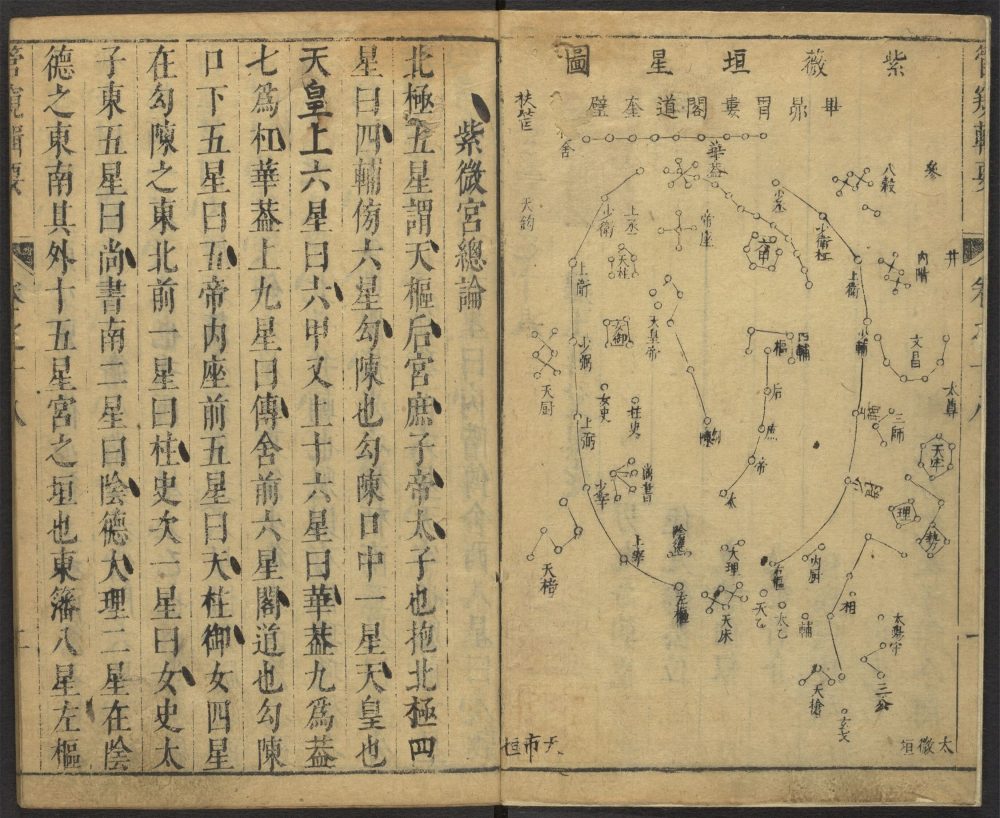 紫薇垣星圖
畢昴胃婁閣道奎壁
扶筐
舍
華蓋
八穀
參
少丞
少衛
天鈎
少衛
上丞
帝座
六甲
井
內階
上衛
天柱
上衛
天皇帝
四輔
樞
文昌
少輔
少弼
天厨
御女
后
太尊
女史
柱史
三師
上弼
勾陳
庶
天牢
帝
少宰
尚書
太
理
勢
上宰
陰德
大理
內厨
天棓
右樞
左樞
相
天床
天乙
太乙
輔
太陽守
天槍
三公
玄戈
天市垣
太微垣
紫微宮總論
北極五星謂天樞后宮庶子帝太子也抱北極四
星曰四輔傍六星勾陳也勾陳口中一星天皇也
天皇上六星曰六甲又上十六星曰華蓋九爲蓋
七爲杠華蓋上九星曰傳舍前六星閣道也勾陳
口下五星曰五帝內座前五星曰天柱御女四星
在勾陳之東北前一星曰柱史次一星曰女史太
子東五星曰尚書南二星曰陰德大理二星在陰
德之東南其外十五星宮之垣也東藩八星左樞